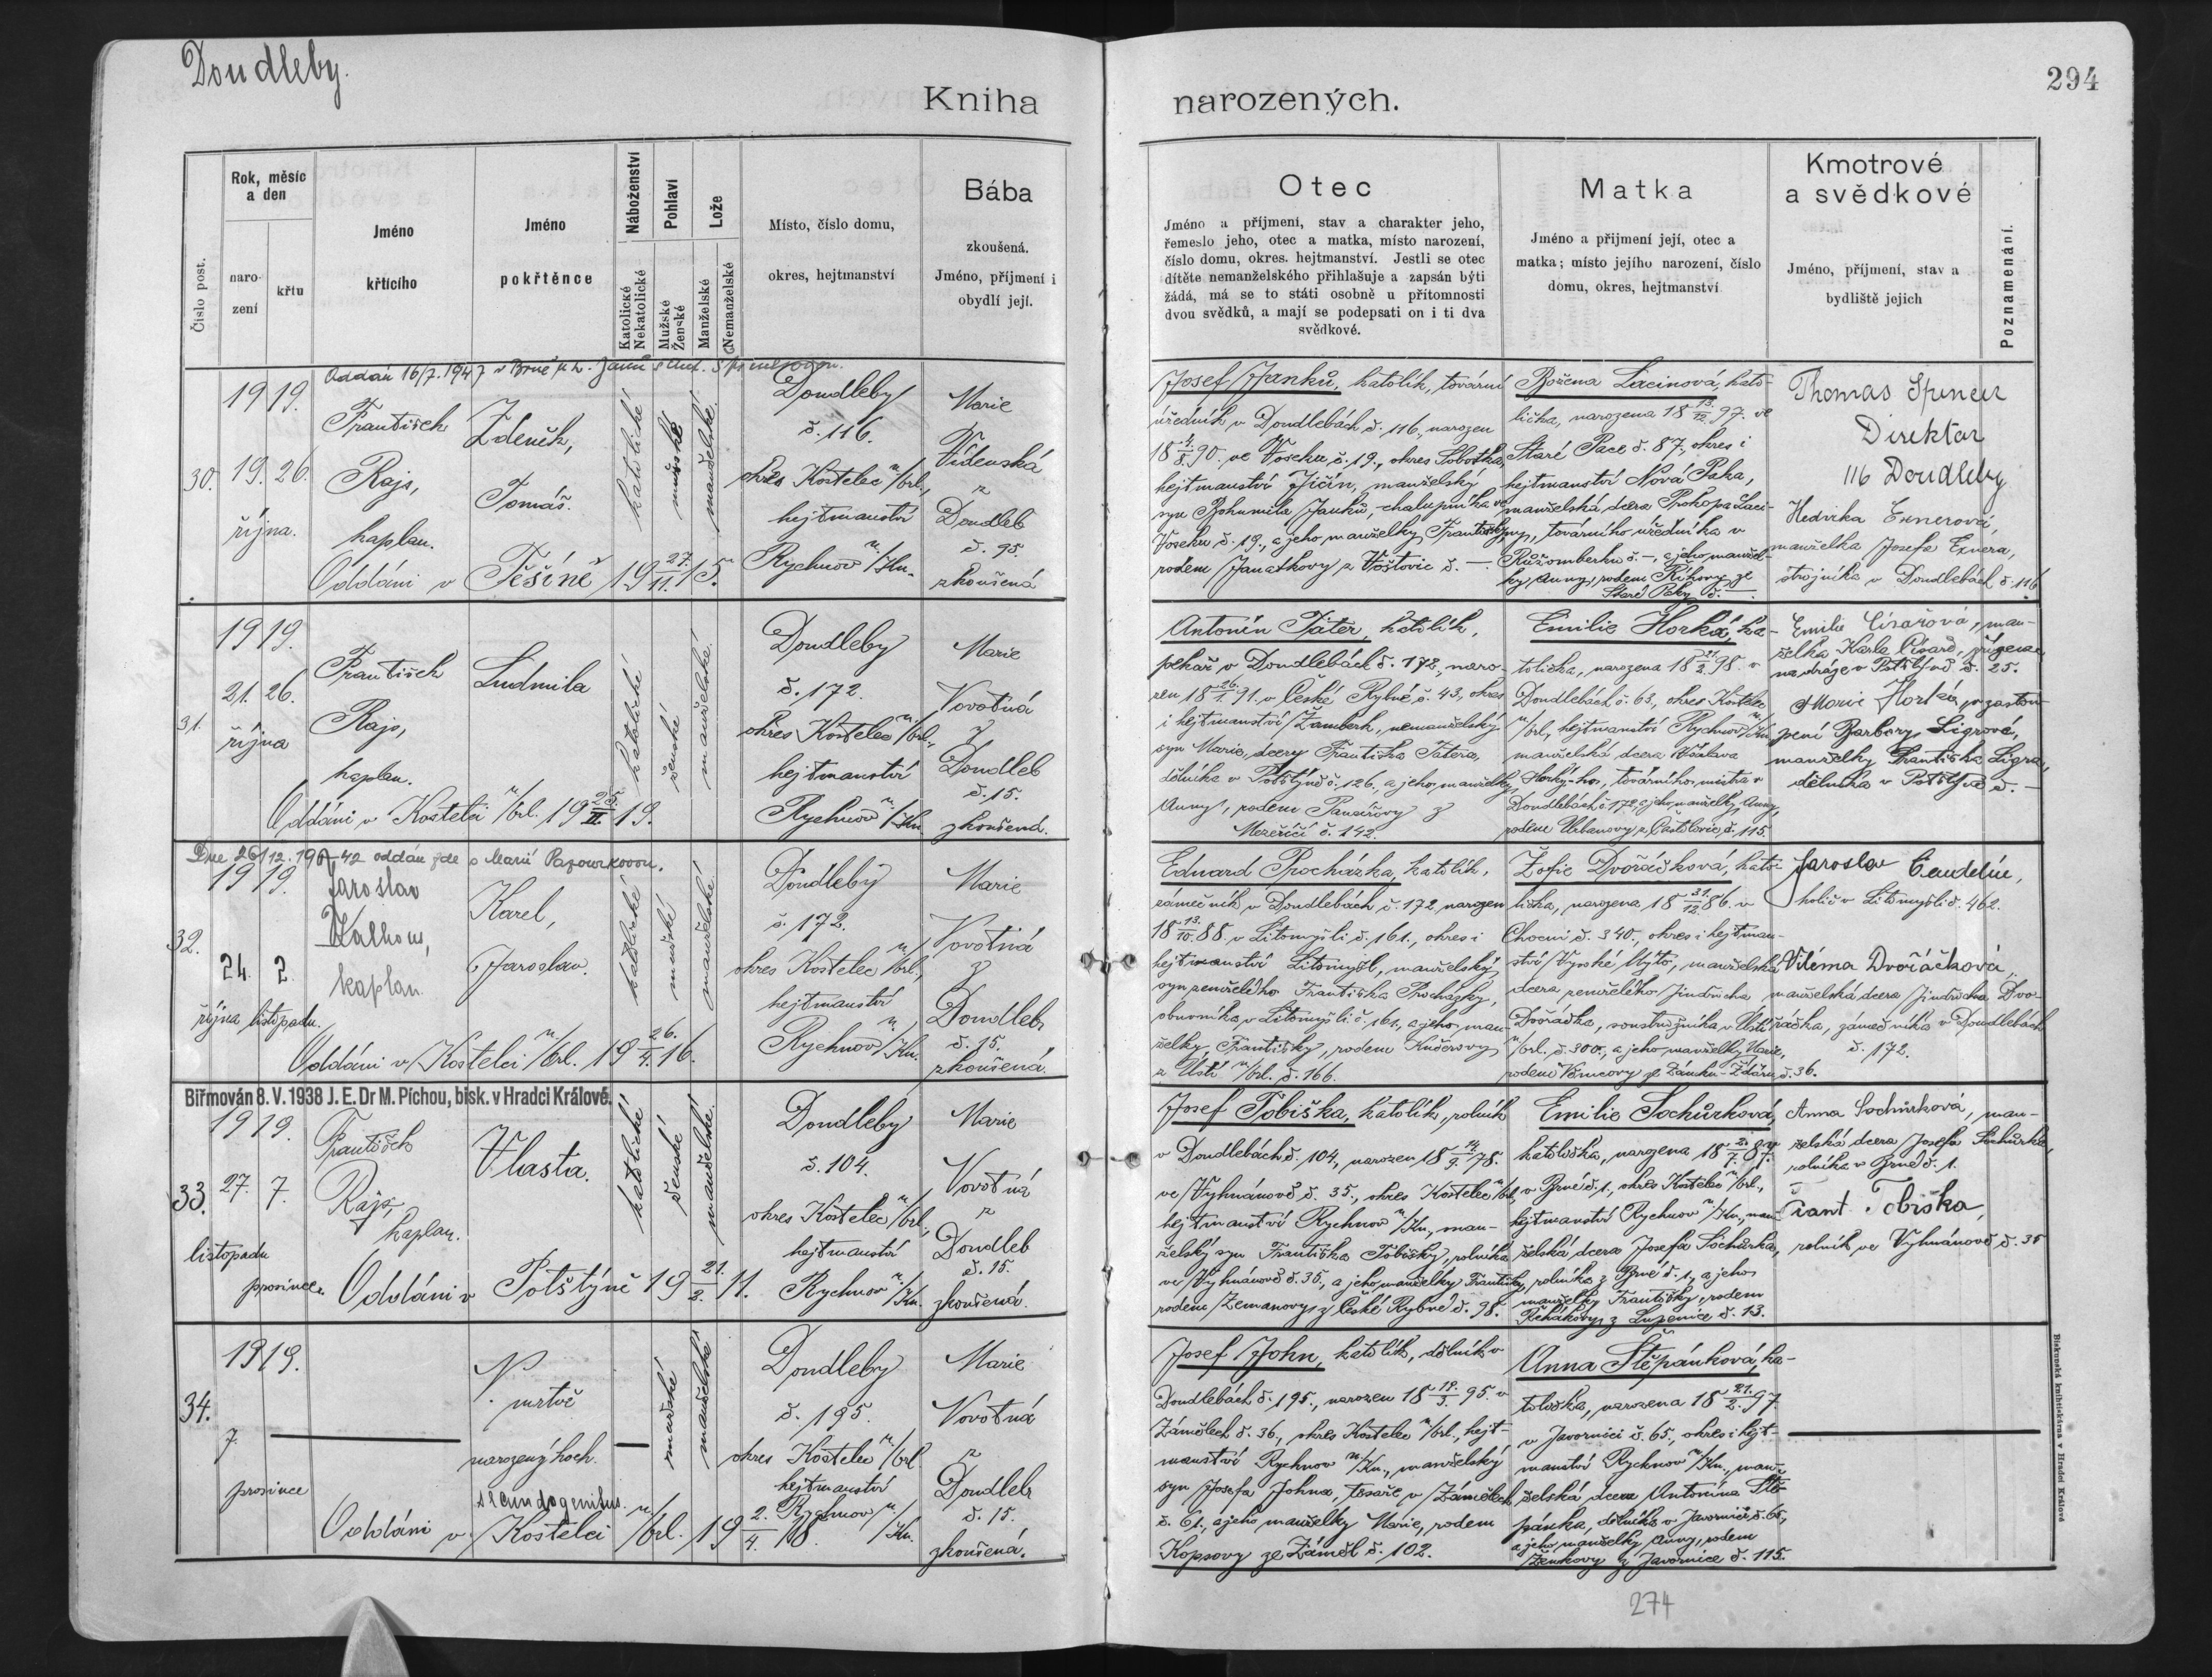 Doudleby.
Kniha
narozených.
294
Číslo post.
Rok, měsíc
a den
naro-
zení
křtu
Jméno
křtícího
Jméno
pokřtěnce
Náboženství
Katolické
Nekatolické
Pohlaví
Mužské
Ženské
Lože
Manželské
Nemanželské
Místo, číslo domu,
okres, hejtmanství
Bába
zkoušená.
Jméno, příjmení i
obydlí její.
Otec
Jméno a příjmení, stav a charakter jeho,
řemeslo jeho, otec a matka, místo narození,
číslo domu, okres. hejtmanství. Jestli se otec
dítěte nemanželského přihlašuje a zapsán býti
žádá, má se to státi osobně u přítomnosti
dvou svědků, a mají se podepsati on i ti dva
svědkové.
Matka
Jméno a přijmení její, otec a
matka; místo jejího narození, číslo
domu, okres, hejtmanství
Kmotrové
a svědkové
Jméno, příjmení, stav a
bydliště jejich
Poznamenání.
Oddán 16/7. 1947 v Brně
30.
1919.
19. 26.
října.
František
Rajs,
kaplan.
Zdeněk,
Tomáš.
katolické
mužské
manželské
Doudleby
č. 116.
okres Kostelec n./Orl.,
hejtmanství
Rychnov n./Kn.
Marie
Vídenská
z
Doudleb
č. 95.
zkoušená
Oddáni v Těšíně 19 27./11. 15.
Josef Janků, katolík, tovární
úředník v Doudlebách č. 116, narozen
18 4./8. 90. ve Voseku č. 19., okres Sobotka,
hejtmanství Jičín, manželský
syn Bohumila Janků, chalupníka ve
Voseku č. 19., a jeho manželky Františky,
rodem Janatkovy z Vőštovic č. —.
Božena Lacinová, kato-
lička, narozena 18 13./12. 97. ve
Staré Pace č. 87., okres i
hejtmanství Nová Paka,
manželská dcera Prokopa Laci-
ny, továrního úředníka v
Růžomberku č. —, a jeho manžel-
ky Anny, rodem Říhovy ze
Staré Paky č. —.
Thomas Spencer
Direktor
116 Doudleby
Hedvika Exnerová,
manželka Josefa Exnera,
strojníka v Doudlebách č. 116.
31.
1919.
21. 26.
října
František
Rajs,
kaplan.
Ludmila
katolické
ženské
manželské
Doudleby
č. 172.
okres Kostelec n./Orl.,
hejtmanství
Rychnov n./Kn.
Marie
Vovotná
z
Doudleb
č. 15.
zkoušená.
Oddáni v Kostelci n./Orl. 19 25./II. 19.
Antonín Páter, katolík,
pekař v Doudlebách č. 172, naro-
zen 18 26./1. 91. v České Rybné č. 43, okres
i hejtmanství Žamberk, nemanželský
syn Marie, dcery Františka Pátera,
dělníka v Potštýně č. 126., a jeho manželky
Anny, rodem Panenovy z
Mezeříčí č. 142.
Emilie Horká, ka-
tolička, narozena 18 21./2. 98. v
Doudlebách č. 63., okres Kostelec
n./Orl., hejtmanství Rychnov n./Kn.
manželská dcera Václava
Horký-ho, továrního mistra v
Doudlebách č. 172, a jeho manželky Anny,
rodem Urbanovy z Častolovic, č. 115.
Emilie Císařová, man-
želka Karla Císaře, zřízence
na dráze v Potštýně č. 25.
Marie Horká, v zastou-
pení Barbory Ligrové,
manželky Františka Ligra,
dělníka v Potštýně č. —
Dne 26/12. 1942 oddán zde s Marií
32.
1919.
24. 2.
října listopadu.
Jaroslav
Kalhous,
kaplan.
Karel,
Jaroslav.
katolické
mužské
manželské
Doudleby
č. 172.
okres Kostelec n./Orl.,
hejtmanství
Rychnov n./Kn.
Marie
Vovotná
z
Doudleb
č. 15.
zkoušená.
Oddáni v Kostelci n./Orl. 19 26./4. 16.
Eduard Procházka, katolík,
zámečník v Doudlebách č. 172, narozen
18 13./10. 88. v Litomyšli č. 161., okres i
hejtmanství Litomyšl, manželský
syn zemřelého Františka Procházky,
obuvníka v Litomyšli č. 161., a jeho man-
želky Františky, rodem Kučerovy
z Ústí n./Orl. č. 166.
Žofie Dvořáčková, kato-
lička, narozena 18 31./12. 86. v
Chocni č. 340., okres i hejtman-
ství Vysoké Mýto, manželská
dcera zemřelého Jindřicha
Dvořáčka, soustružníka v Ústí
n./Orl. č. 300., a jeho manželky Marie,
rodem Němcovy ze Zámku-Žďáru č. 36.
Jaroslav Coudelín,
holič v Litomyšli č. 462.
Viléma Dvořáčková,
manželská dcera Jindřicha Dvo-
řáčka, zámečníka v Doudlebách
č. 172.
Biřmován 8. V. 1938 J. E. Dr M. Píchou, bisk. v Hradci Králové.
33.
1919.
27. 7.
listopadu
prosince.
František
Rajs,
kaplan.
Vlasta.
katolické
ženské
manželské
Doudleby
č. 104.
okres Kostelec n./Orl.,
hejtmanství
Rychnov n./Kn.
Marie
Vovotná
z
Doudleb
č. 15.
zkoušená.
Oddáni v Potštýně 19 21./2. 11.
Josef Tobiška, katolík, rolník
v Doudlebách č. 104, narozen 18 14./9. 78.
ve Vyhnánově č. 35., okres Kostelec n./Orl.,
hejtmanství Rychnov n./Kn., man-
želský syn Františka Tobišky, rolníka
ve Vyhnánově č. 35., a jeho manželky Františky,
rodem Zemanovy z České Rybné č. 98.
Emilie Sochůrková,
katolička, narozena 18 2./7. 87.
v Brné č. 1., okres Kostelec n./Orl.,
hejtmanství Rychnov n./Kn., man-
želská dcera Josefa Sochůrka,
rolníka z Brné č. 1., a jeho
manželky Františky, rodem
Řehákovy z Lupenice č. 13.
Anna Sochůrková, man-
želská dcera Josefa Sochůrka,
rolníka v Brné č. 1.
Frant. Tobiška,
rolník ve Vyhnánově č. 35
34.
1919.
7.
prosince
N.
mrtvě
narozený hoch.
secundogenitus.
mužské
manželské
Doudleby
č. 195.
okres Kostelec n./Orl.
hejtmanství
Rychnov n./Kn.
Marie
Vovotná
z
Doudleb
č. 15.
zkoušená.
Oddáni v Kostelci n./Orl. 19 2./4. 18.
Josef John, katolík, dělník v
Doudlebách č. 195., narozen 18 19./3. 95. v
Zámělech č. 36., okres Kostelec n./Orl., hejt-
manství Rychnov n./Kn., manželský
syn Josefa Johna, tesaře v Zámělech
č. 61., a jeho manželky Marie, rodem
Kopsovy ze Záměl č. 102.
Anna Štěpánková, ka-
tolička, narozena 18 21./2. 97
v Javornici č. 65., okres i hejt-
manství Rychnov n./Kn., man-
želská dcera Antonína Ště-
pánka, dělníka v Javornici č. 65,
a jeho manželky Anny, rodem
Ženkovy z Javornice č. 115.
Biskupská knihtiskárna v Hradci Králové
274